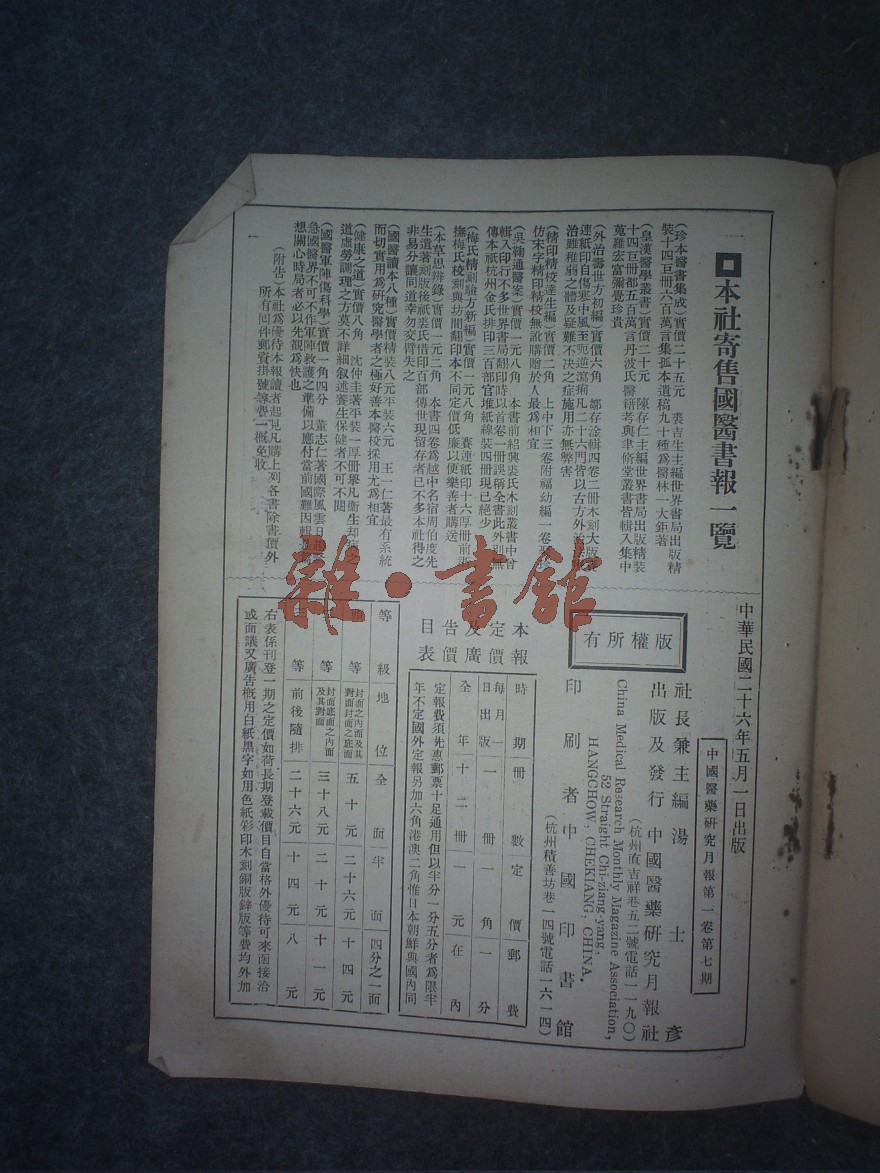 本社寄售國醫書報一覽
(珍本醫書集成)實價二十五元 裘吉生主編世界書局出版精
裝十四巨冊六百萬言集孤本遺稿九十種爲醫林一大鉅著
(皇漢醫學叢書)實價二十元 陳存仁主編世界書局出版精裝
十四巨冊都五百萬言丹波氏醫籍考與聿修堂叢書皆輯入集中
蒐羅宏富彌覺珍貴
(外治壽世方初編)實價六角 鄒存淦輯四卷二冊木刻大版
連紙印自傷寒中風至瘧逆瀉痢凡二十六門皆以古方外治
治雖稚弱之體及疑難不決之症施用亦無弊害
(精印精校達生編)實價二角 上中下三卷附福幼編一卷
仿宋字精印精校無訛購贈於人最爲相宜
(吳鞠通醫案)實價一元八角 本書前紹興裘氏木刻叢書中曾
輯入印行不多世界書局翻印時以首卷一冊誤稱全書此外別無
傳本祇杭州金氏排印三百部官堆紙線裝四冊現已絕少
(梅氏精刻驗方新編)實價一元八角 賽連紙印十六厚冊前
撫梅氏校刻與坊間翻印本不同定價低廉以便樂善者購送
(本草思辨錄)實價一元二角 本書四卷爲越中名宿周伯度先
生遺著刻版後祇裘氏借印百部傳世現留存者已不多本社得之
非易分讓同道幸勿交臂失之
(國醫讀本八種)實價精裝八元平裝六元 王一仁著最有系統
而切實用爲研究醫學者之極好善本醫校採用尤爲相宜
(健康之道)實價八角 沈仲圭著平裝一厚冊舉凡衞生却病
道虛勞調理之方莫不詳細叙述養生保健者不可不閱
(國醫軍陣傷科學)實價一角四分 董志仁著國際風雲日
急國醫界不可不作軍陣救護之準備以應付當前國難因輯
想關心時局者必以先覩爲快也
(附告)本社爲優待本報讀者起見凡購上列各書除書價外
所有回件郵資掛號等費一概免收
中華民國二十六年五月一日出版
中國醫藥研究月報第一卷第七期
版權所有
社長兼主編湯士彥
出版及發行中國醫藥研究月報社
(杭州直吉祥巷五二號電話一一九〇)
China Medical Research Monthly Magazine Association,
52 Straight Chi-ziang-yang,
HANGCHOW, CHEKIANG, CHINA.
印刷者中國印書館
(杭州積善坊巷一四號電話一六一四)
本報定價及廣告價目表
時期 冊數 定價 郵費
每月一日出版 一冊 一角 一分
全年 十二冊 一元 在內
定報費須先惠郵票十足通用但以半分一分五分者爲限半
年不定國外定報另加六角港澳二角惟日本朝鮮與國內同
等級 地位 全面 半面 四分之一面
等 封面之內面及其對面封面之底面 五十元 二十六元 十四元
等 封面底面之內面及其對面 三十八元 二十元 十一元
等 前後隨排 二十六元 十四元 八元
右表係刊登一期之定價如荷長期登載價目自當格外優待可來面接洽
或面議又廣告槪用白紙黑字如用色紙彩印木刻銅版鋅版等費均外加
雜·書館